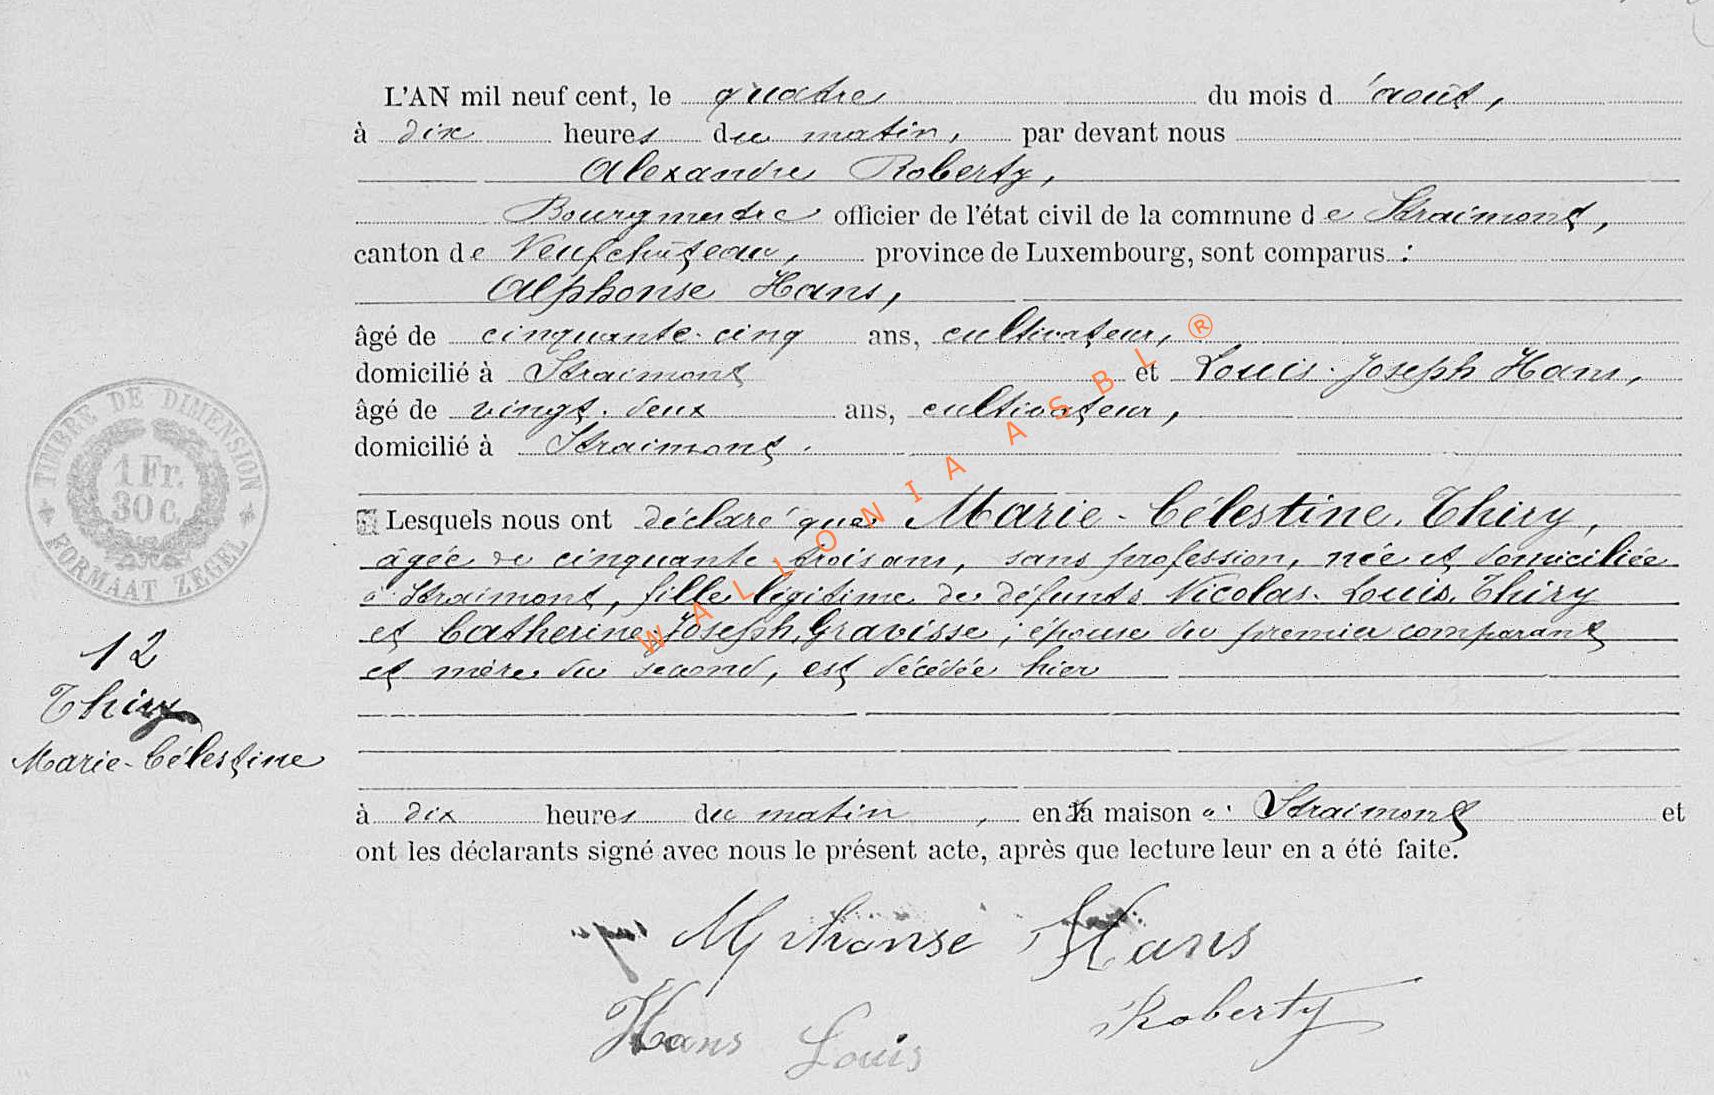 L'AN mil neuf cent, le quatre du mois d'août,
à dix heures du matin, par devant nous
Alexandre Roberty,
Bourgmestre officier de l'état civil de la commune de Straimont,
canton de Neufchâteau, province de Luxembourg, sont comparus :
Alphonse Hans,
âgé de cinquante-cinq ans, cultivateur,
domicilié à Straimont et Louis-Joseph Hans,
âgé de vingt-deux ans, cultivateur,
domicilié à Straimont.
Lesquels nous ont déclaré que Marie-Célestine Thiry,
âgée de cinquante trois ans, sans profession, née et domiciliée
à Straimont, fille légitime de défunts Nicolas-Louis Thiry
et Catherine-Joseph Gravisse, épouse du premier comparant
et mère du second, est décédée hier
à dix heures du matin, en sa maison à Straimont et
ont les déclarants signé avec nous le présent acte, après que lecture leur en a été faite.
Alphonse Hans
Roberty
Hans Louis
TIMBRE DE DIMENSION
1 Fr.
30 C.
FORMAAT ZEGEL
12
Thiry
Marie-Célestine
WALLONIA ASBL ®